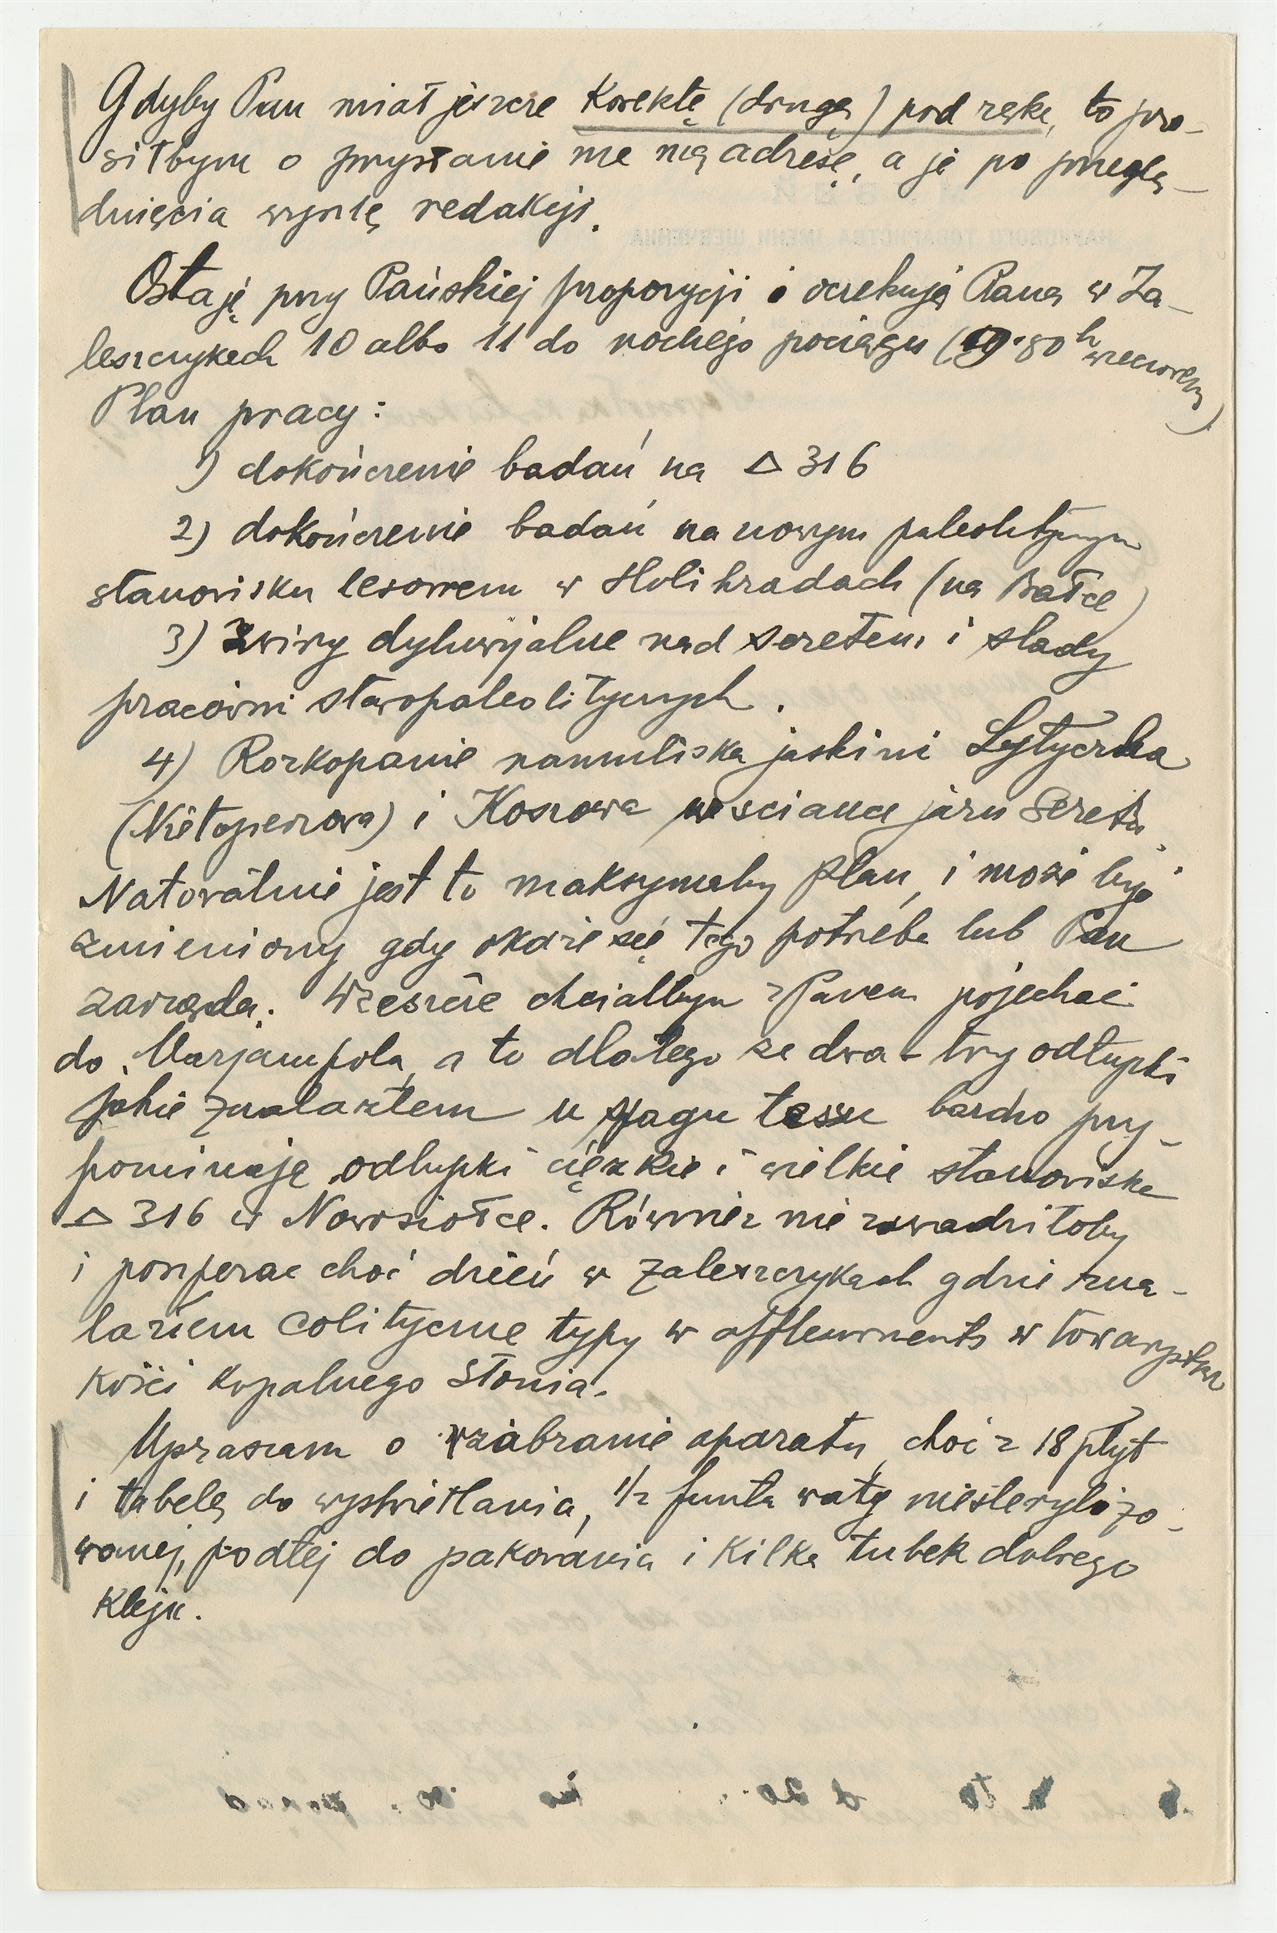 Gdyby Pan miał jeszcze Korektę (drugą) pod ręką, to pro-
siłbym o przysłanie me mą adresę, a ja po przeglą-
dnięcia wyszlę redakcji.
Ostaję przy Pańskiej propozycji i oczekuję Pana w Za-
leszczykach 10 albo 11 do nocnego pociągu (9·80 h wieczorem)
Plan pracy:
1) dokończenie badań na △ 316
2) dokończenie badań na nowym paleolitycznym
stanowisku lesowem w Holihradach (na Bałce)
3) żwiry dyluwjalne nad Seretem i slady
pracowni staropaleolitycznych.
4) Rozkopanie namuliska jaskini Lytyczka
(Nietoperzowa) i Kosrowa w sciance jaru Seretu.
Naturalnie jest to maksymalny plan, i może być
zmieniony gdy okaże się tego potrzeba lub Pan
zarządą. Wreszcie chciałbym z Panem pojechać
do Marjampola, a to dlatego że dwa-try odłupki
jakie znalazłem u spągu lessu bardzo przy-
pominają odłupki ciężkie i wielkie stanowiska
△ 316 w Nowosiołce. Również nie zawadziłoby
i poszperac choć dzień w Zaleszczykach gdzie zna-
lazłem eolityczne typy w affleurments w towarzystwe
kości kopalnego słonia.
Upraszam o zabranie aparatu, choć z 18 płyt
i tabelę do wyświetlania, 1/2 funta watę niesterylizo-
wanej, podłej do pakowania i kilka tubek dobrego
kleju.